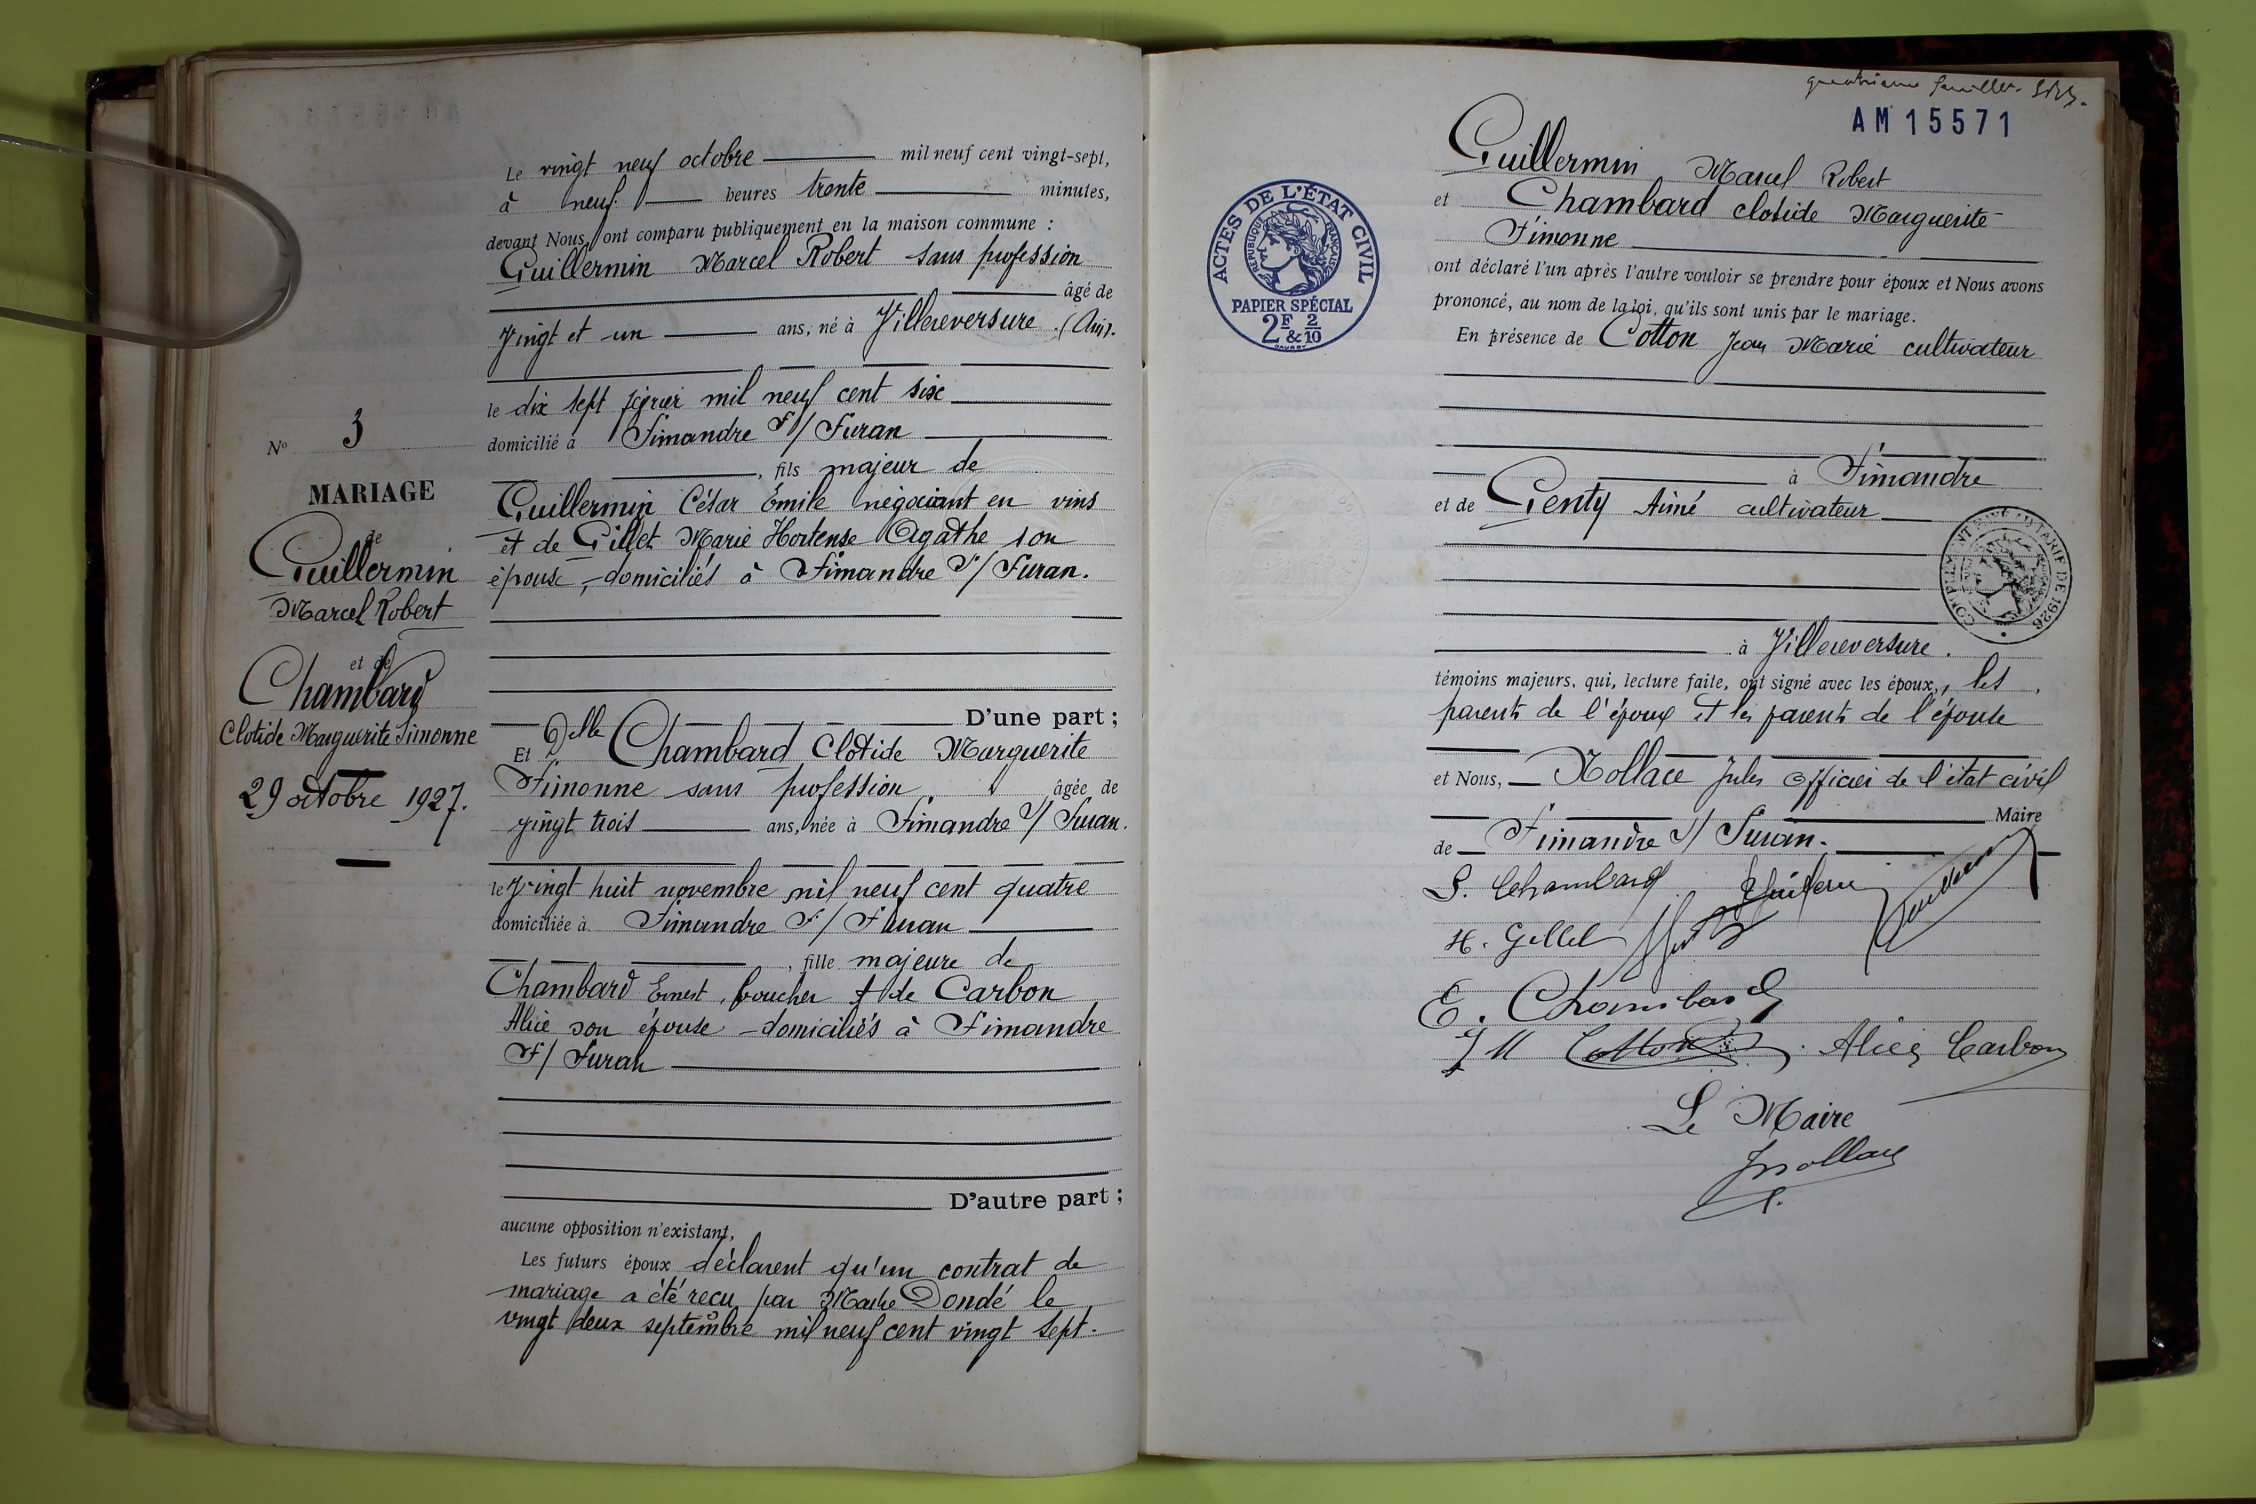 Le vingt neuf octobre mil neuf cent vingt-sept,
à neuf heures trente minutes,
devant Nous, ont comparu publiquement en la maison commune :
Guillermin Marcel Robert sans profession
âgé de
vingt et un ans, né à Villereversure (Ain).
le dix sept février mil neuf cent six
domicilié à Simandre S/ Suran
, fils majeur de
Guillermin César Émile négociant en vins
et de Gillet Marie Hortense Agathe son
épouse, domiciliés à Simandre S/ Suran.
D'une part ;
Et Delle Chambard Clotide Marguerite
Simonne sans profession âgée de
vingt trois ans, née à Simandre S/ Suran.
le vingt huit novembre mil neuf cent quatre
domiciliée à Simandre S/ Suran
, fille majeure de
Chambard Ernest, boucher & de Carbon
Alice son épouse domiciliés à Simandre
S/ Suran
D'autre part ;
aucune opposition n'existant,
Les futurs époux déclarent qu'un contrat de
mariage a été reçu par Maître Dondé le
vingt deux septembre mil neuf cent vingt sept.
No 3
MARIAGE
de
Guillermin
Marcel Robert
et de
Chambard
Clotide Marguerite Simonne
29 octobre 1927.
quatrième feuillet
AM 15571
Guillermin Marcel Robert
et Chambard clotide Marguerite
Simonne
ont déclaré l'un après l'autre vouloir se prendre pour époux et Nous avons
prononcé, au nom de la loi, qu'ils sont unis par le mariage.
En présence de Cotton Jean Marie cultivateur
à Simandre
et de Genty Aimé cultivateur
à Villereversure.
témoins majeurs, qui, lecture faite, ont signé avec les époux, les
parents de l'époux et les parents de l'épouse
et Nous, Nollace Jules Officier de l'état civil
Maire
de Simandre S/ Suran.
S. Chambard
H. Gillet
E. Chambard
J M Cotton Alice Carbon
Le Maire
JNollace
ACTES DE L'ÉTAT CIVIL
RÉPUBLIQUE FRANÇAISE
PAPIER SPÉCIAL
2F & 2/10
TARIF DE 1926